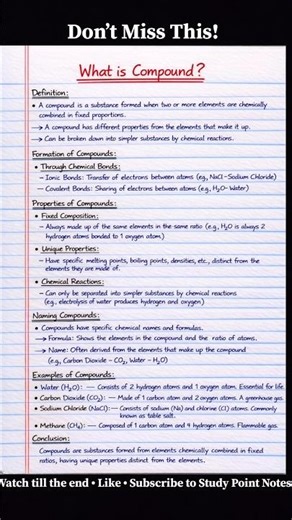 Don't Miss This!
What is Compound?
Definition:
• A compound is a substance formed when two or more elements are chemically
combined in fixed proportions.
→ A compound has different properties from the elements that make it up.
→ Can be broken down into simpler substances by chemical reactions.
Formation of Compounds:
• Through Chemical Bonds:
– Ionic Bonds: Transfer of electrons between atoms (e.g., NaCl-Sodium Chloride)
– Covalent Bonds: Sharing of electrons between atoms (e.g., H₂O- Water)
Properties of Compounds:
• Fixed Composition:
– Always made up of the same elements in the same ratio (e.g., H₂O is always 2
hydrogen atoms bonded to 1 oxygen atom).
• Unique Properties:
– Have specific melting points, boiling points, densities, etc., distinct from the
elements they are made of.
• Chemical Reactions:
– Can only be separated into simpler substances by chemical reactions
(e.g., electrolysis of water produces hydrogen and oxygen)
Naming Compounds:
• Compounds have specific chemical names and formulas.
→ Formula: Shows the elements in the compound and the ratio of atoms.
→ Name: Often derived from the elements that make up the compound
(e.g., Carbon Dioxide – CO₂, Water – H₂O)
Examples of Compounds:
• Water (H₂O): — Consists of 2 hydrogen atoms and 1 oxygen atom. Essential for life.
• Carbon Dioxide (CO₂): — Made of 1 carbon atom and 2 oxygen atoms. A greenhouse gas.
• Sodium Chloride (NaCl): — Consists of sodium (Na) and chlorine (Cl) atoms. Commonly
known as table salt.
• Methane (CH₄): — Composed of 1 carbon atom and 4 hydrogen atoms. Flammable gas.
Conclusion:
Compounds are substances formed from elements chemically combined in fixed
ratios, having unique properties distinct from the elements.
Watch till the end • Like • Subscribe to Study Point Notes